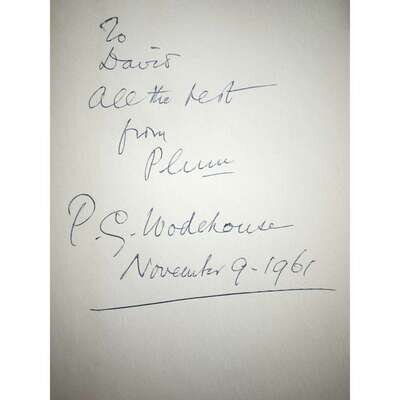 To
David
All the best
from
Plum
P. G. Wodehouse
November 9 - 1961